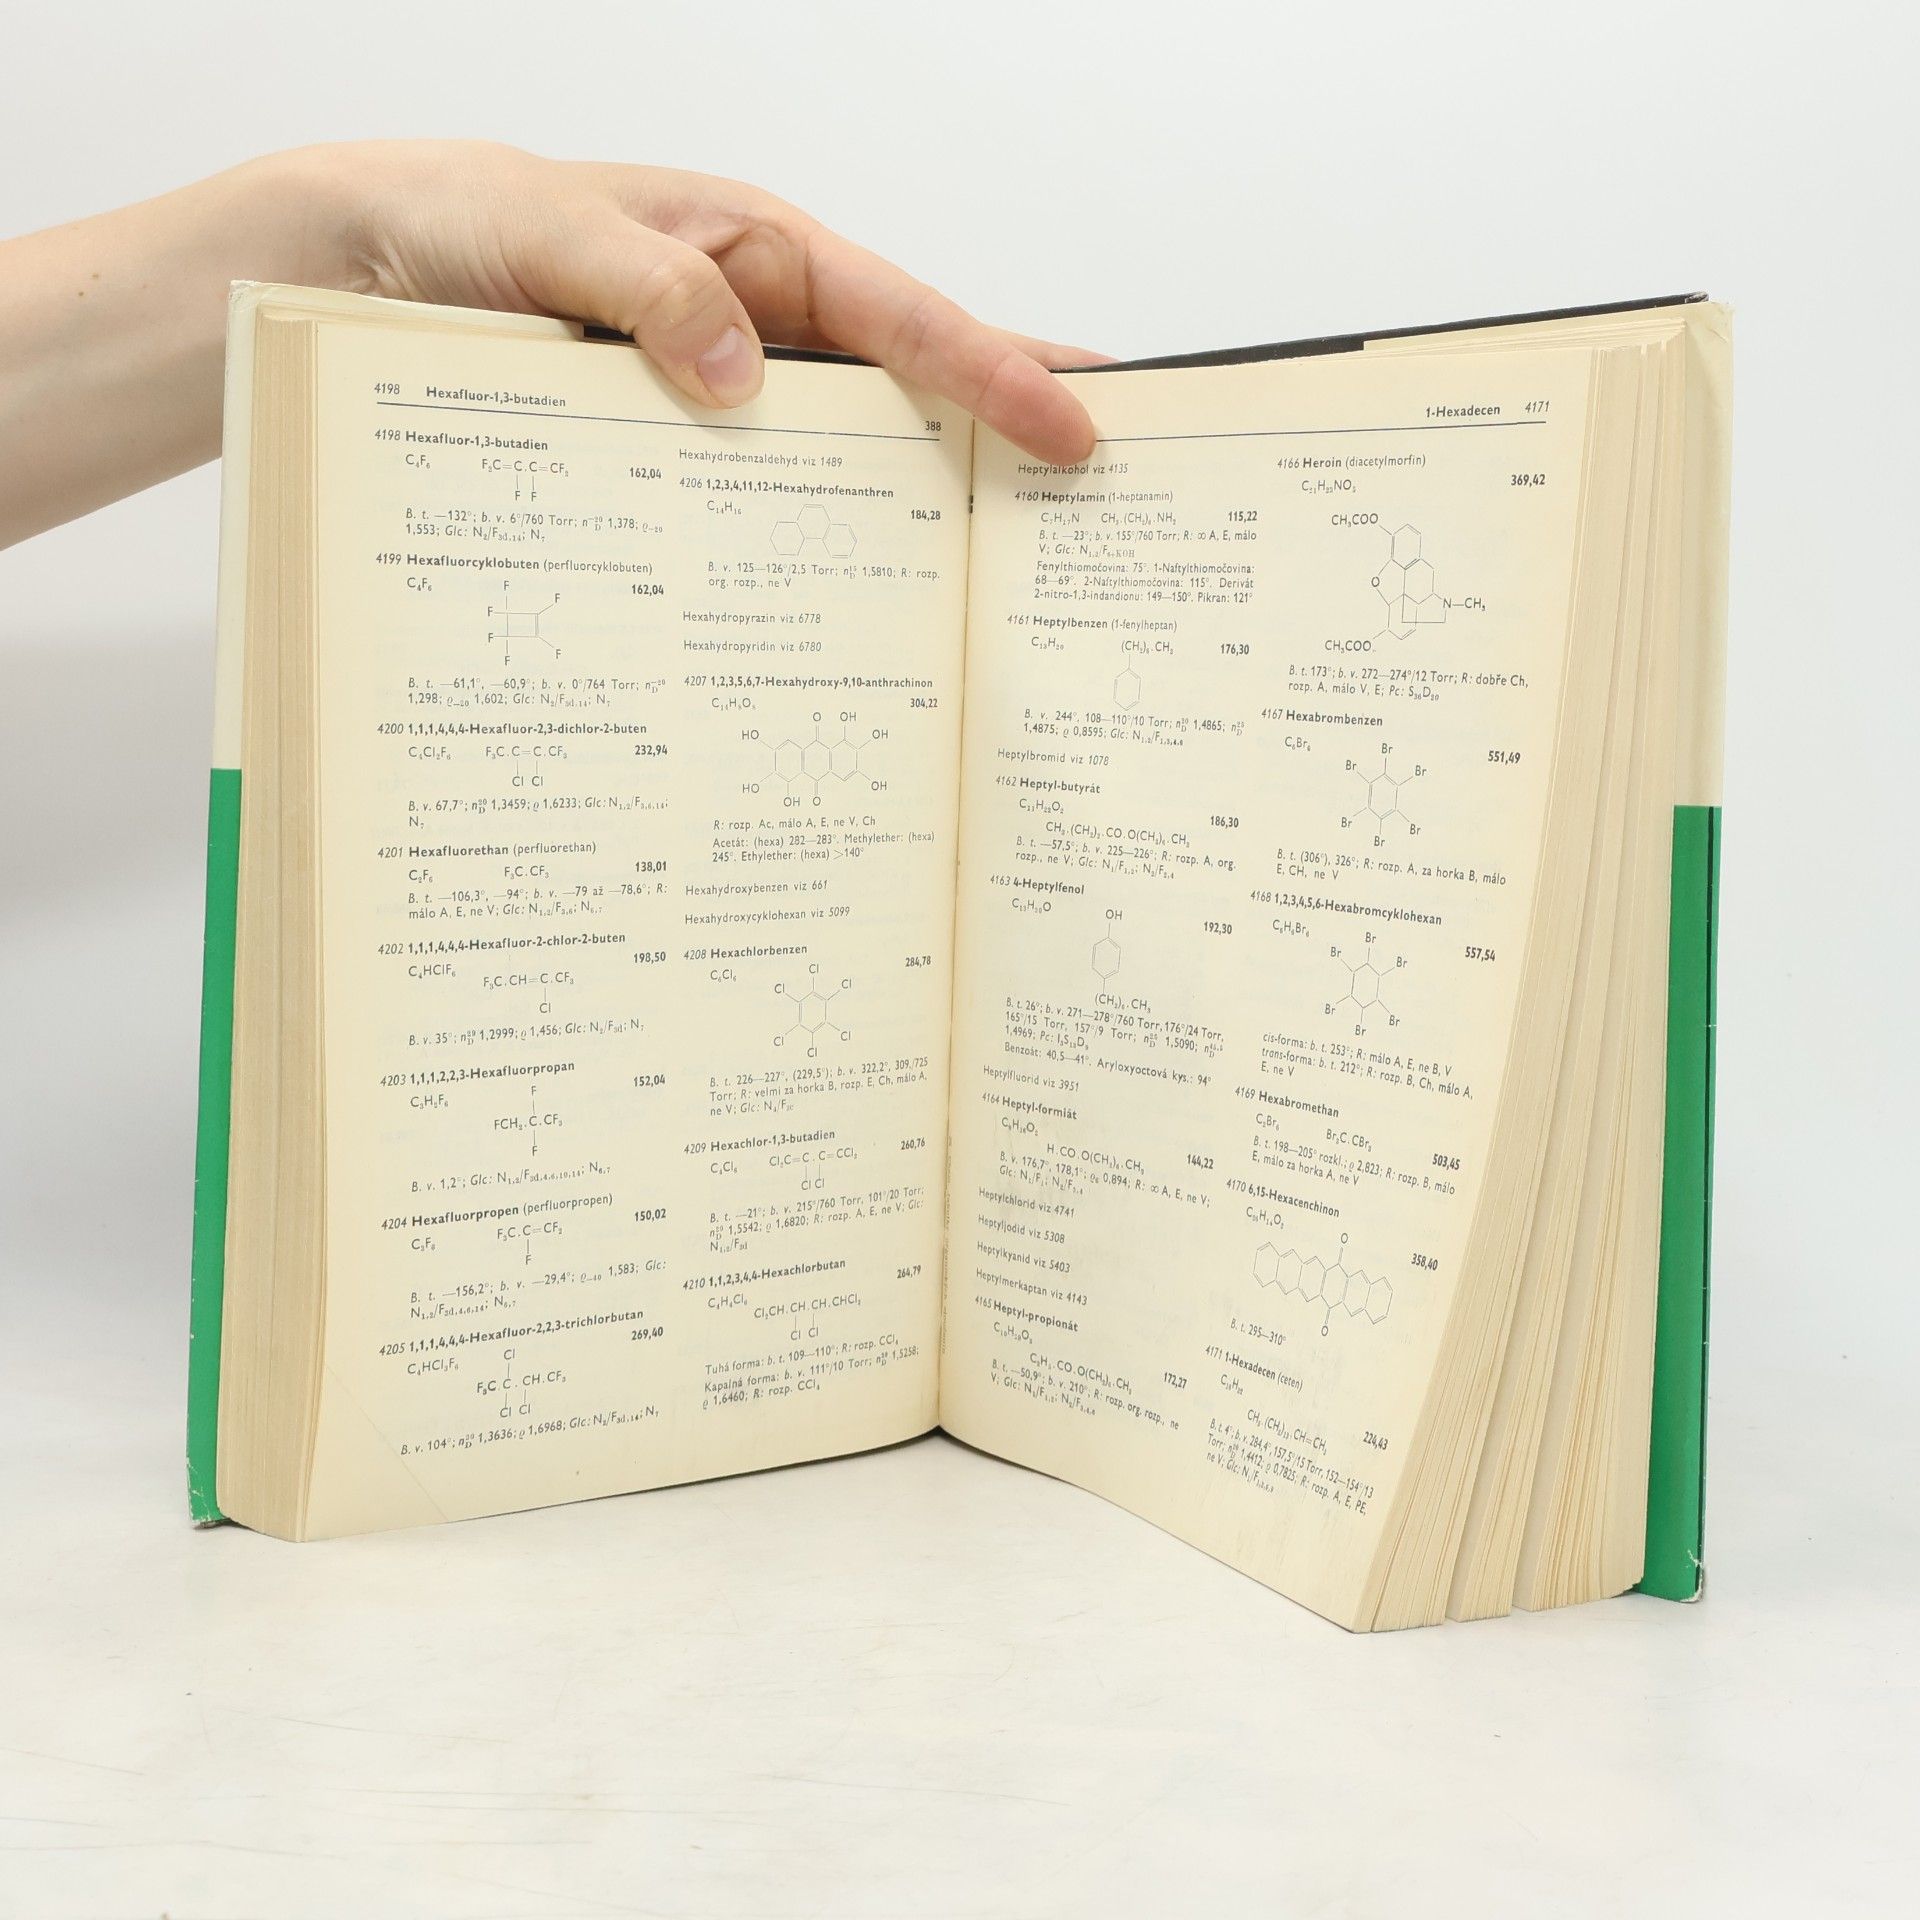 4198 Hexafluor-1,3-butadien
388
4198 Hexafluor-1,3-butadien
C₄F₆ F₂C=C.C=CF₂ 162,04
F F
B. t. —132°; b. v. 6°/760 Torr; n_D^−20 1,378; ϱ₋₂₀
1,553; Glc: N₂/F₃d,₁₄; N₇
4199 Hexafluorcyklobuten (perfluorcyklobuten)
C₄F₆ 162,04
F
F F
F F
F
B. t. —61,1°, —60,9°; b. v. 0°/764 Torr; n_D^−20
1,298; ϱ₋₂₀ 1,602; Glc: N₂/F₃d,₁₄; N₇
4200 1,1,1,4,4,4-Hexafluor-2,3-dichlor-2-buten
C₄Cl₂F₆ F₃C.C=C.CF₃ 232,94
Cl Cl
B. v. 67,7°; n_D^20 1,3459; ϱ 1,6233; Glc: N₁,₂/F₃,₆,₁₄;
N₇
4201 Hexafluorethan (perfluorethan)
C₂F₆ F₃C.CF₃ 138,01
B. t. —106,3°, —94°; b. v. —79 až —78,6°; R:
málo A, E, ne V; Glc: N₁,₂/F₃,₆; N₆,₇
4202 1,1,1,4,4,4-Hexafluor-2-chlor-2-buten
C₄HClF₆ F₃C.CH=C.CF₃ 198,50
Cl
B. v. 35°; n_D^20 1,2999; ϱ 1,456; Glc: N₂/F₃d; N₇
4203 1,1,1,2,2,3-Hexafluorpropan
C₃H₂F₆ 152,04
F
FCH₂.C.CF₃
F
B. v. 1,2°; Glc: N₁,₂/F₃d,₄,₆,₁₀,₁₄; N₆,₇
4204 Hexafluorpropen (perfluorpropen)
C₃F₆ F₃C.C=CF₂ 150,02
F
B. t. —156,2°; b. v. —29,4°; ϱ₋₄₀ 1,583; Glc:
N₁,₂/F₃d,₄,₆,₁₄; N₆,₇
4205 1,1,1,4,4,4-Hexafluor-2,2,3-trichlorbutan
C₄HCl₃F₆ 269,40
Cl
F₃C.C.CH.CF₃
Cl Cl
B. v. 104°; n_D^20 1,3636; ϱ 1,6968; Glc: N₂/F₃d,₁₄; N₇
Hexahydrobenzaldehyd viz 1489
4206 1,2,3,4,11,12-Hexahydrofenanthren
C₁₄H₁₆ 184,28
B. v. 125—126°/2,5 Torr; n_D^15 1,5810; R: rozp.
org. rozp., ne V
Hexahydropyrazin viz 6778
Hexahydropyridin viz 6780
4207 1,2,3,5,6,7-Hexahydroxy-9,10-anthrachinon
C₁₄H₈O₈ 304,22
O OH
HO OH
HO OH
OH O
R: rozp. Ac, málo A, E, ne V, Ch
Acetát: (hexa) 282—283°. Methylether: (hexa)
245°. Ethylether: (hexa) >140°
Hexahydroxybenzen viz 661
Hexahydroxycyklohexan viz 5099
4208 Hexachlorbenzen
C₆Cl₆ 284,78
Cl
Cl Cl
Cl Cl
Cl
B. t. 226—227°, (229,5°); b. v. 322,2°, 309°/725
Torr; R: velmi za horka B, rozp. E, Ch, málo A,
ne V; Glc: N₄/F₃c
4209 Hexachlor-1,3-butadien
C₄Cl₆ Cl₂C=C.C=CCl₂ 260,76
Cl Cl
B. t. —21°; b. v. 215°/760 Torr, 101°/20 Torr;
n_D^20 1,5542; ϱ 1,6820; R: rozp. A, E, ne V; Glc:
N₁,₂/F₃d
4210 1,1,2,3,4,4-Hexachlorbutan
C₄H₄Cl₆ 264,79
Cl₂CH.CH.CH.CHCl₂
Cl Cl
Tuhá forma: b. t. 109—110°; R: rozp. CCl₄
Kapalná forma: b. v. 111°/10 Torr; n_D^20 1,5258;
ϱ 1,6460; R: rozp. CCl₄
1-Hexadecen 4171
Heptylalkohol viz 4135
4160 Heptylamin (1-heptanamin)
C₇H₁₇N CH₃.(CH₂)₆.NH₂ 115,22
B. t. —23°; b. v. 155°/760 Torr; R: ∞ A, E, málo
V; Glc: N₁,₂/F₆₊KOH
Fenylthiomočovina: 75°. 1-Naftylthiomočovina:
68—69°. 2-Naftylthiomočovina: 115°. Derivát
2-nitro-1,3-indandionu: 149—150°. Pikran: 121°
4161 Heptylbenzen (1-fenylheptan)
C₁₃H₂₀ (CH₂)₆.CH₃ 176,30
B. v. 244°, 108—110°/10 Torr; n_D^20 1,4865; n_D^25
1,4875; ϱ 0,8595; Glc: N₁,₂/F₁,₃,₄,₆
Heptylbromid viz 1078
4162 Heptyl-butyrát
C₁₁H₂₂O₂ 186,30
CH₃.(CH₂)₂.CO.O(CH₂)₆.CH₃
B. t. —57,5°; b. v. 225—226°; R: rozp. A, org.
rozp., ne V; Glc: N₁/F₁,₂; N₂/F₂,₄
4163 4-Heptylfenol
C₁₃H₂₀O 192,30
OH
(CH₂)₆.CH₃
B. t. 26°; b. v. 271—278°/760 Torr, 176°/24 Torr,
165°/15 Torr, 157°/9 Torr; n_D^25 1,5090; n_D^45,5
1,4969; Pc: I₃S₁₃D₉
Benzoát: 40,5—41°. Aryloxyoctová kys.: 94°
Heptylfluorid viz 3951
4164 Heptyl-formiát
C₈H₁₆O₂ 144,22
H.CO.O(CH₂)₆.CH₃
B. v. 176,7°, 178,1°; ϱ₀ 0,894; R: ∞ A, E, ne V;
Glc: N₁/F₁; N₂/F₂,₄
Heptylchlorid viz 4741
Heptyljodid viz 5308
Heptylkyanid viz 5403
Heptylmerkaptan viz 4143
4165 Heptyl-propionát
C₁₀H₂₀O₂
C₂H₅.CO.O(CH₂)₆.CH₃ 172,27
B. t. —50,9°; b. v. 210°; R: rozp. org. rozp., ne
V; Glc: N₁/F₁,₂; N₂/F₂,₄,₆
4166 Heroin (diacetylmorfin)
C₂₁H₂₃NO₅ 369,42
CH₃COO
O
N—CH₃
CH₃COO
B. t. 173°; b. v. 272—274°/12 Torr; R: dobře Ch,
rozp. A, málo V, E; Pc: S₃₆D₂₀
4167 Hexabrombenzen
C₆Br₆ 551,49
Br
Br Br
Br Br
Br
B. t. (306°), 326°; R: rozp. A, za horka B, málo
E, CH, ne V
4168 1,2,3,4,5,6-Hexabromcyklohexan
C₆H₆Br₆ 557,54
Br
Br Br
Br Br
Br
cis-forma: b. t. 253°; R: málo A, E, ne B, V
trans-forma: b. t. 212°; R: rozp. B, Ch, málo A,
E, ne V
4169 Hexabromethan
C₂Br₆ Br₃C.CBr₃ 503,45
B. t. 198—205° rozkl.; ϱ 2,823; R: rozp. B, málo
E, málo za horka A, ne V
4170 6,15-Hexacenchinon
C₂₆H₁₄O₂ 358,40
O
O
B. t. 295—310°
4171 1-Hexadecen (ceten)
C₁₆H₃₂
CH₃.(CH₂)₁₃.CH=CH₂ 224,43
B. t. 4°; b. v. 284,4°, 157,5°/15 Torr, 152—154°/13
Torr; n_D^20 1,4412; ϱ 0,7825; R: rozp. A, E, PE,
ne V; Glc: